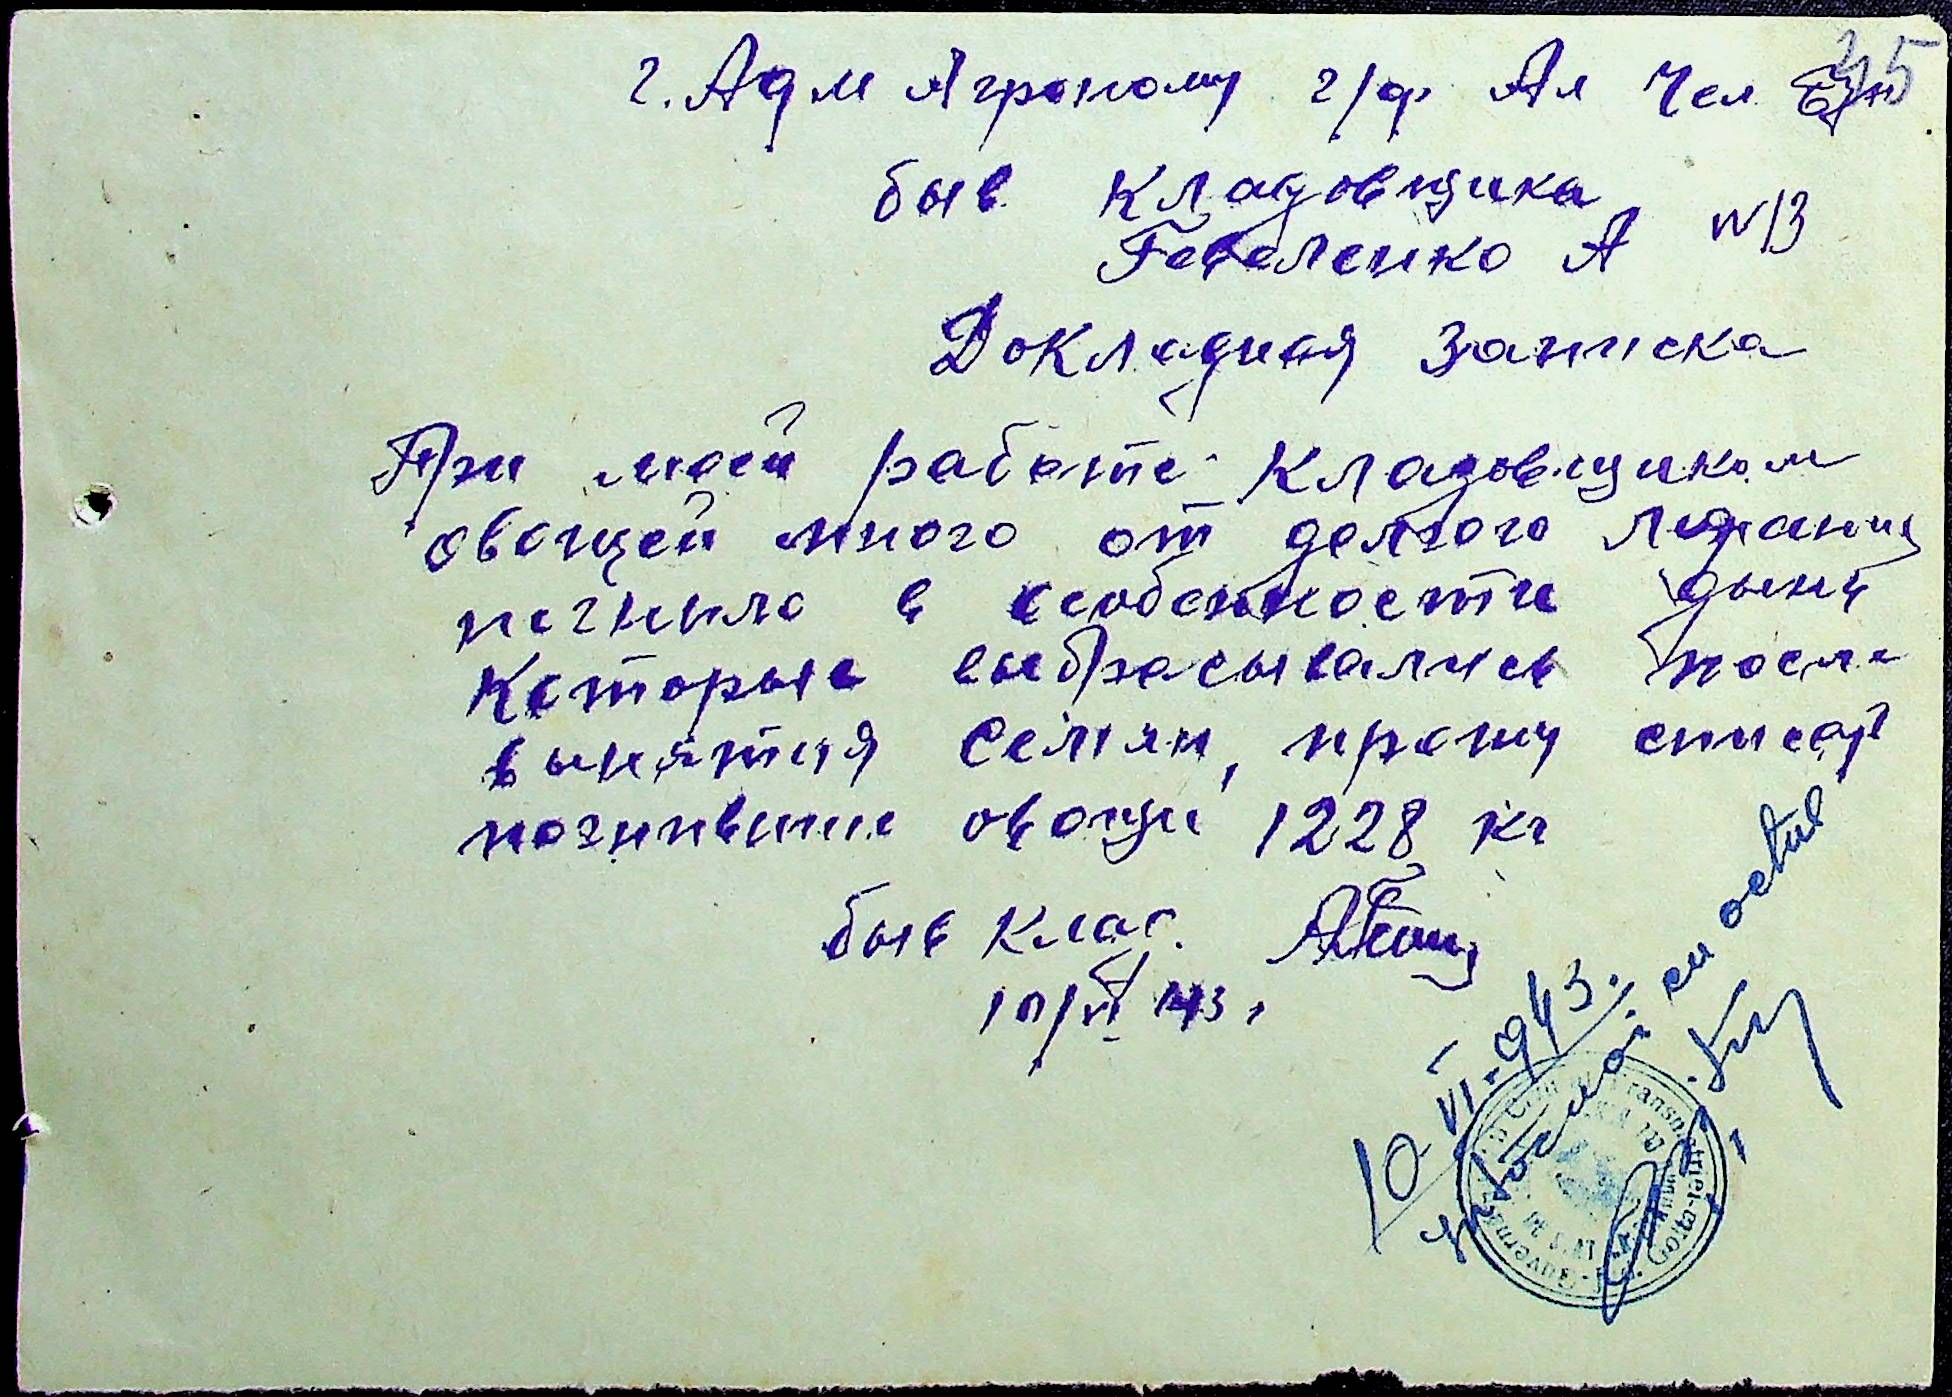 35
г. Адм Агроному г/ф Ал Чел
быв Кладовщика
Гевеленко А N13
Докладная Записка
При моей работе Кладовщиком
овощей много от долгого лежания
погнило в особенности дыни
Которые выбрасывались после
вынятия семян, прошу списат
погнившие овощи 1228 кг
быв Клад.
10/VI 43 г
10 VI. 943.